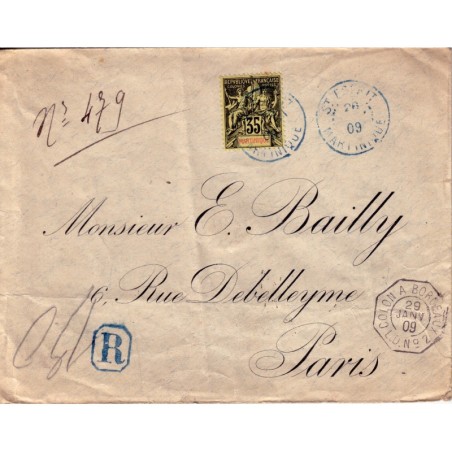 REPUBLIQUE FRANCAISE
35
MARTINIQUE
MARTINIQUE
ST ESPRIT
09
MARTINIQUE
Nº 479
Monsieur E. Bailly
6, Rue Debelleyme
Paris
R
COLON A BORDEAUX
29
JANV
09
L.D. Nº 2